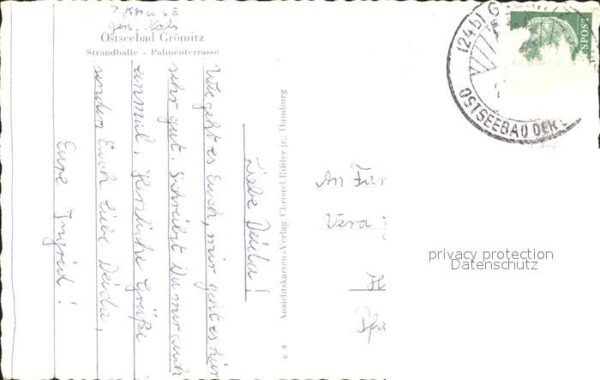 Ostseebad Grömitz
Strandhalle - Palmenterrasse
Liebe
Wie geht es Euch, mir geht es hier
sehr gut. Schreibst Du mir auch
einmal. Herzliche Grüße
senden Euch liebe
Eure Ingrid!
Ansichtskarten-Verlag Christel Bißler jr., Hamburg
(24b) G
OSTSEEBAD DER
SPOST
An
Vera
privacy protection
Datenschutz